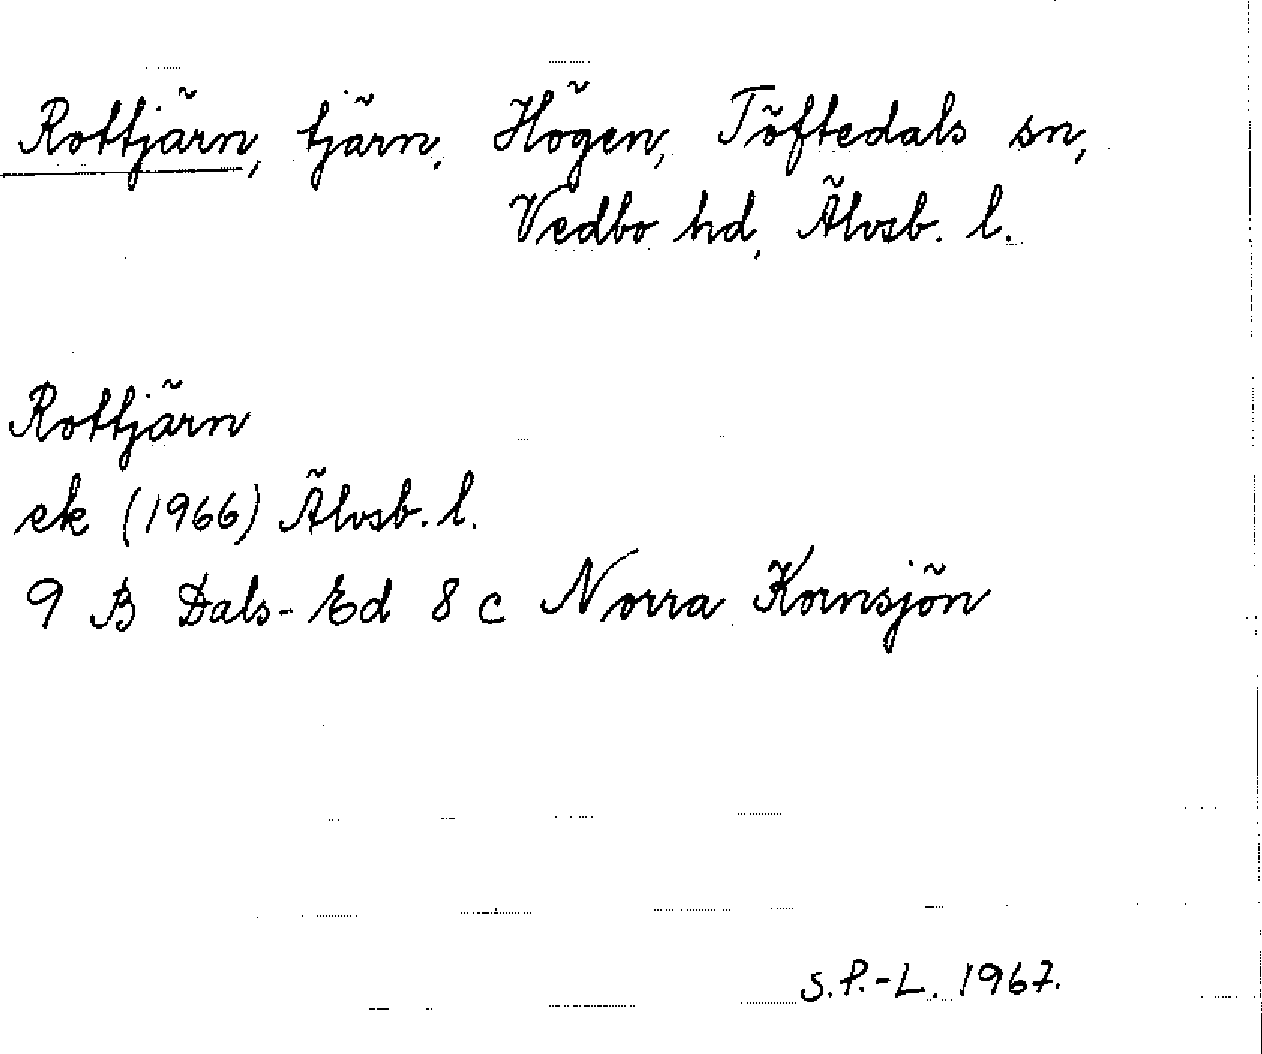 Rottjärn, tjärn, Högen, Töftedals sn,
Vedbo hd, Älvsb. l.
Rottjärn
ek (1966) Älvsb. l.
9 B Dals-Ed 8 c Norra Kornsjön
S.P.-L. 1967.